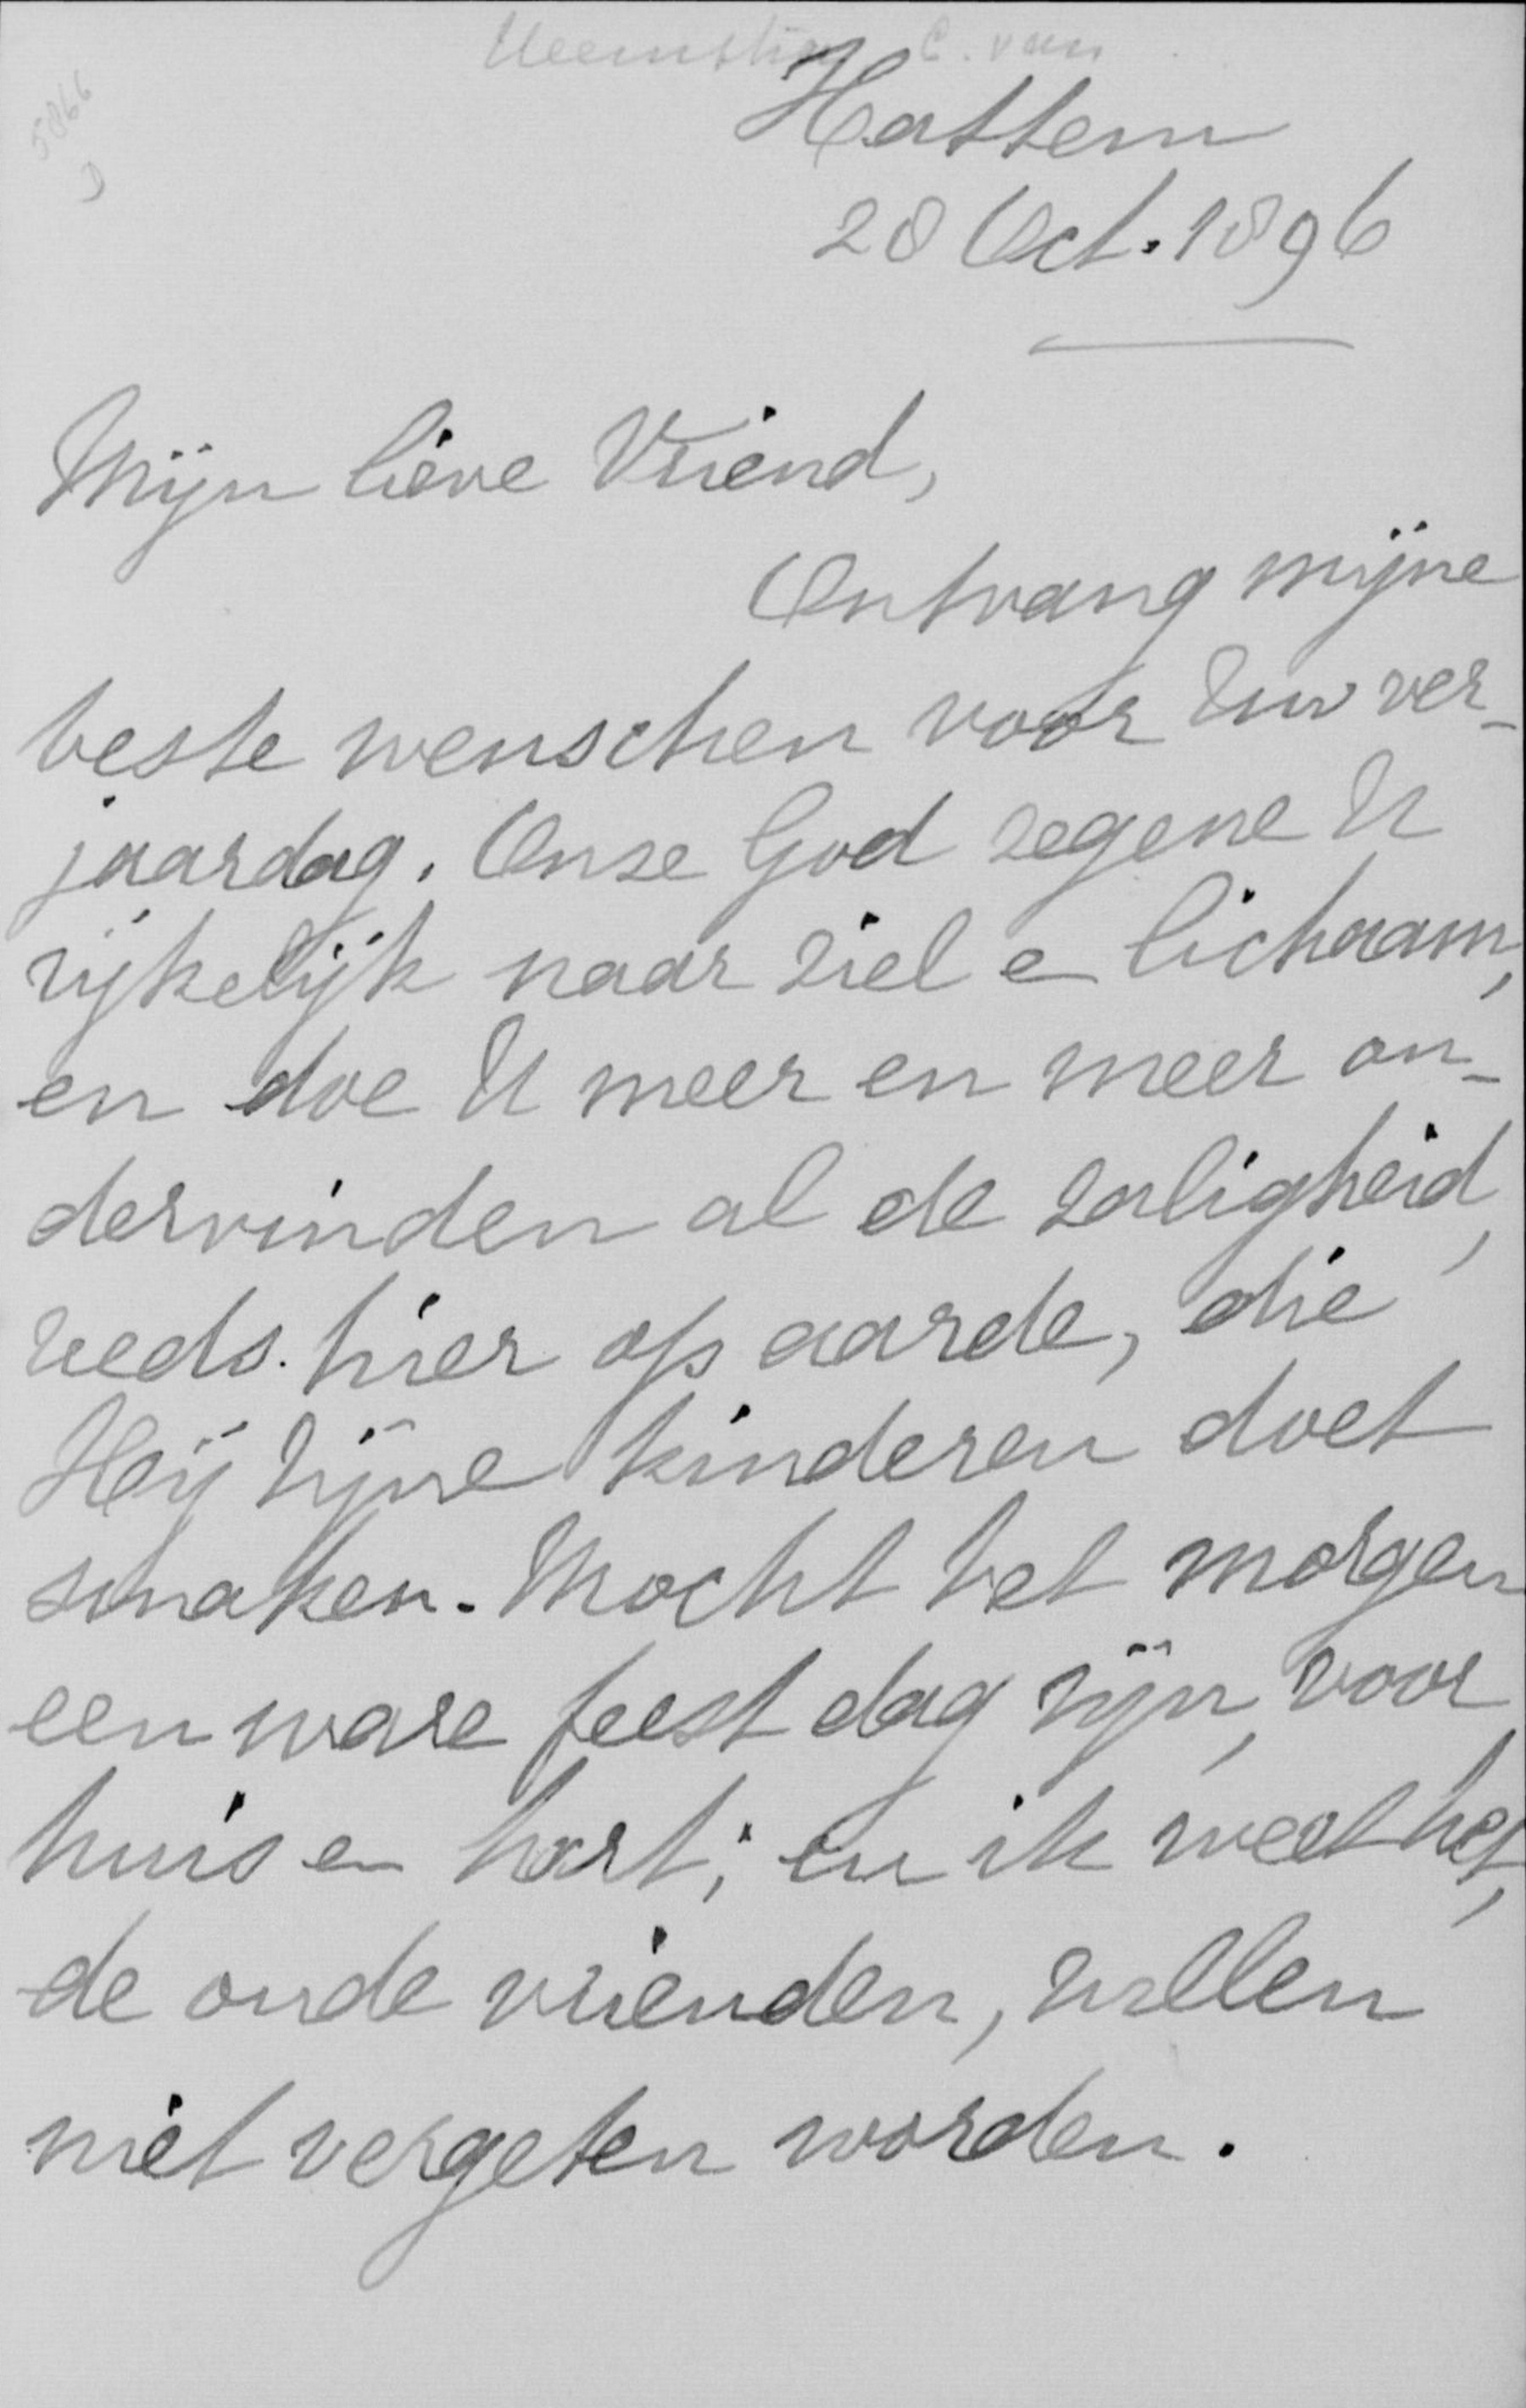 C. van
Hattem
28 Oct. 1896
5866
D
Mijn lieve Vriend,
Ontvang mijne
beste wenschen voor Uw ver-
jaardag. Onze God zegene U
rijkelijk naar ziel e lichaam,
en doe U meer en meer on-
dervinden al de zaligheid,
reeds hier op aarde, die
Hij Zijne kinderen doet
smaken. Mocht het morgen
een ware feest dag zijn, voor
huis en hart; en ik weet het,
de oude vrienden, zullen
niet vergeten worden.